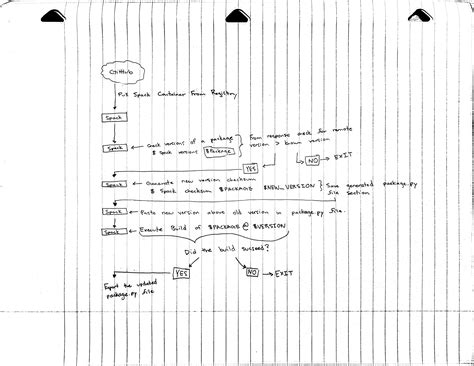 GitHub
Pull Spack Container From Registry
Spack
Spack
Check versions of a package
$ Spack versions $Package
From response check for remote
version > known version
YES
NO → EXIT
Spack
Generate new version checksum
$ Spack checksum $PACKAGE $NEW_VERSION
Save generated package.py
file section
Spack
Paste new version above old version in package.py file.
Spack
Execute Build of $PACKAGE @ $VERSION
Did the build succeed?
YES
NO → EXIT
Export the updated
package.py file